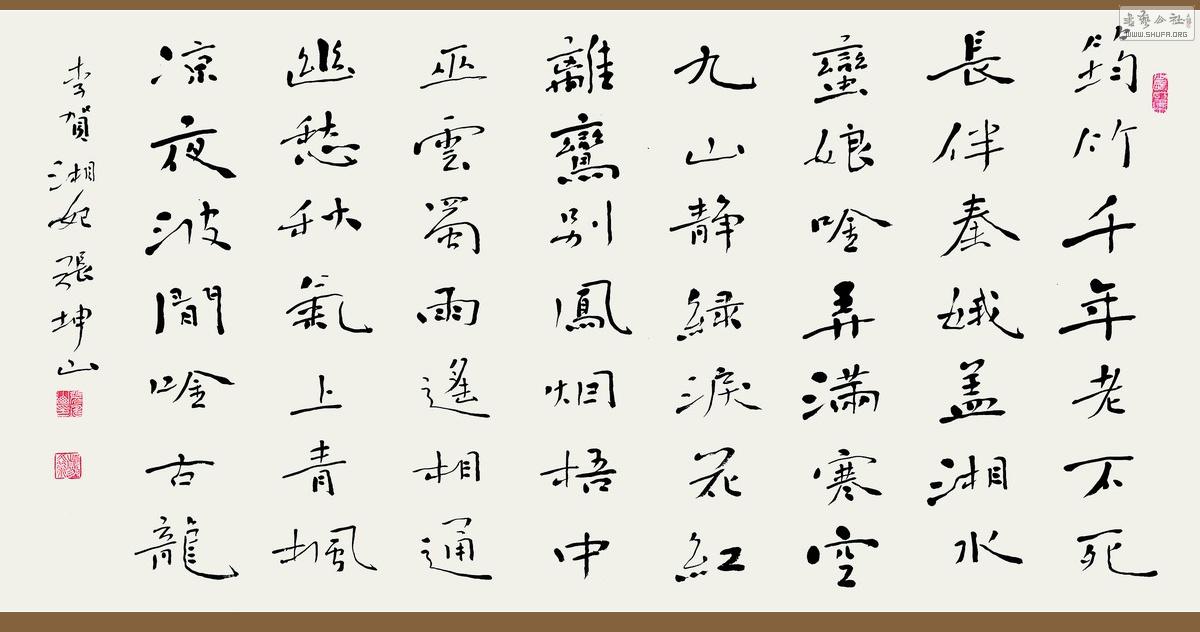 筠竹千年老不死
長伴秦娥盖湘水
蠻娘唫弄滿寒空
九山静緑淚花紅
離鸞別鳳烟梧中
巫雲蜀雨遙相通
幽愁秋氣上青楓
凉夜波間唫古龍
李賀湘妃張坤山
WWW.SHUFA.ORG